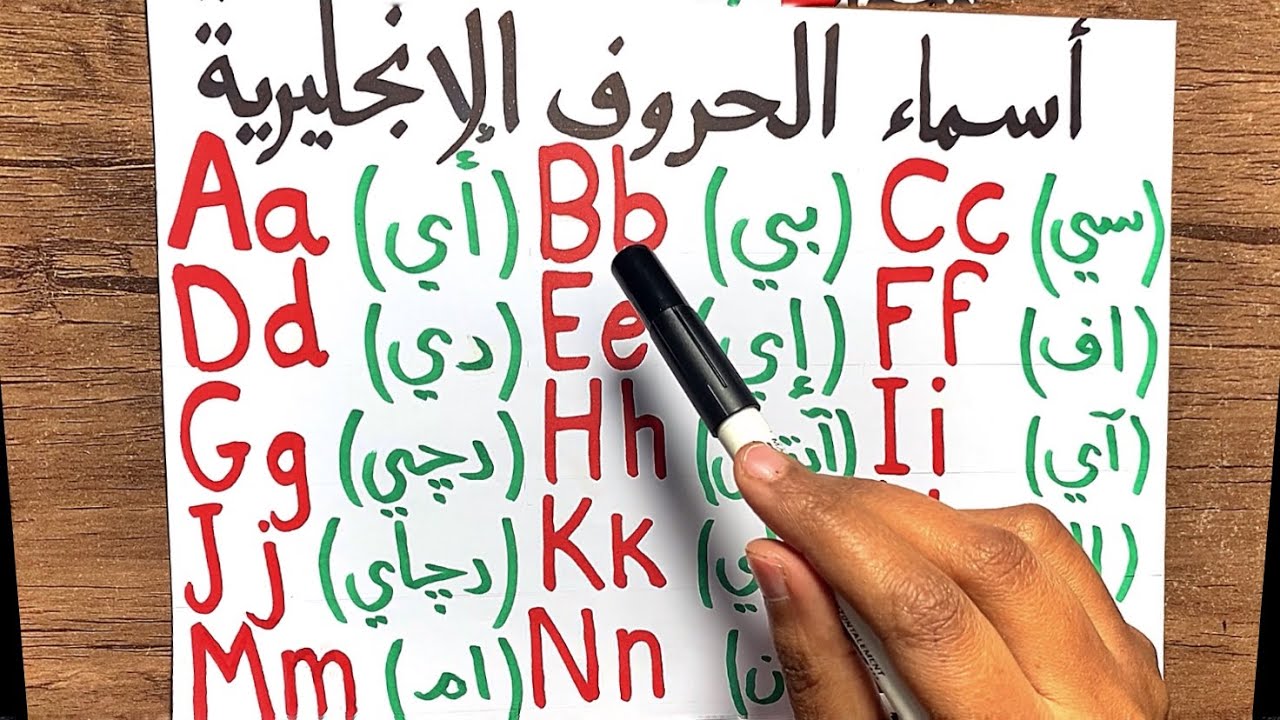 أسماء الحروف الإنجليرية
Aa (أي) Bb (بي) Cc (سي)
Dd (دي) Ee (إي) Ff (اف)
Gg (دچي) Hh Ii (آي)
Jj (دچاي) Kk
Mm (ام) Nn